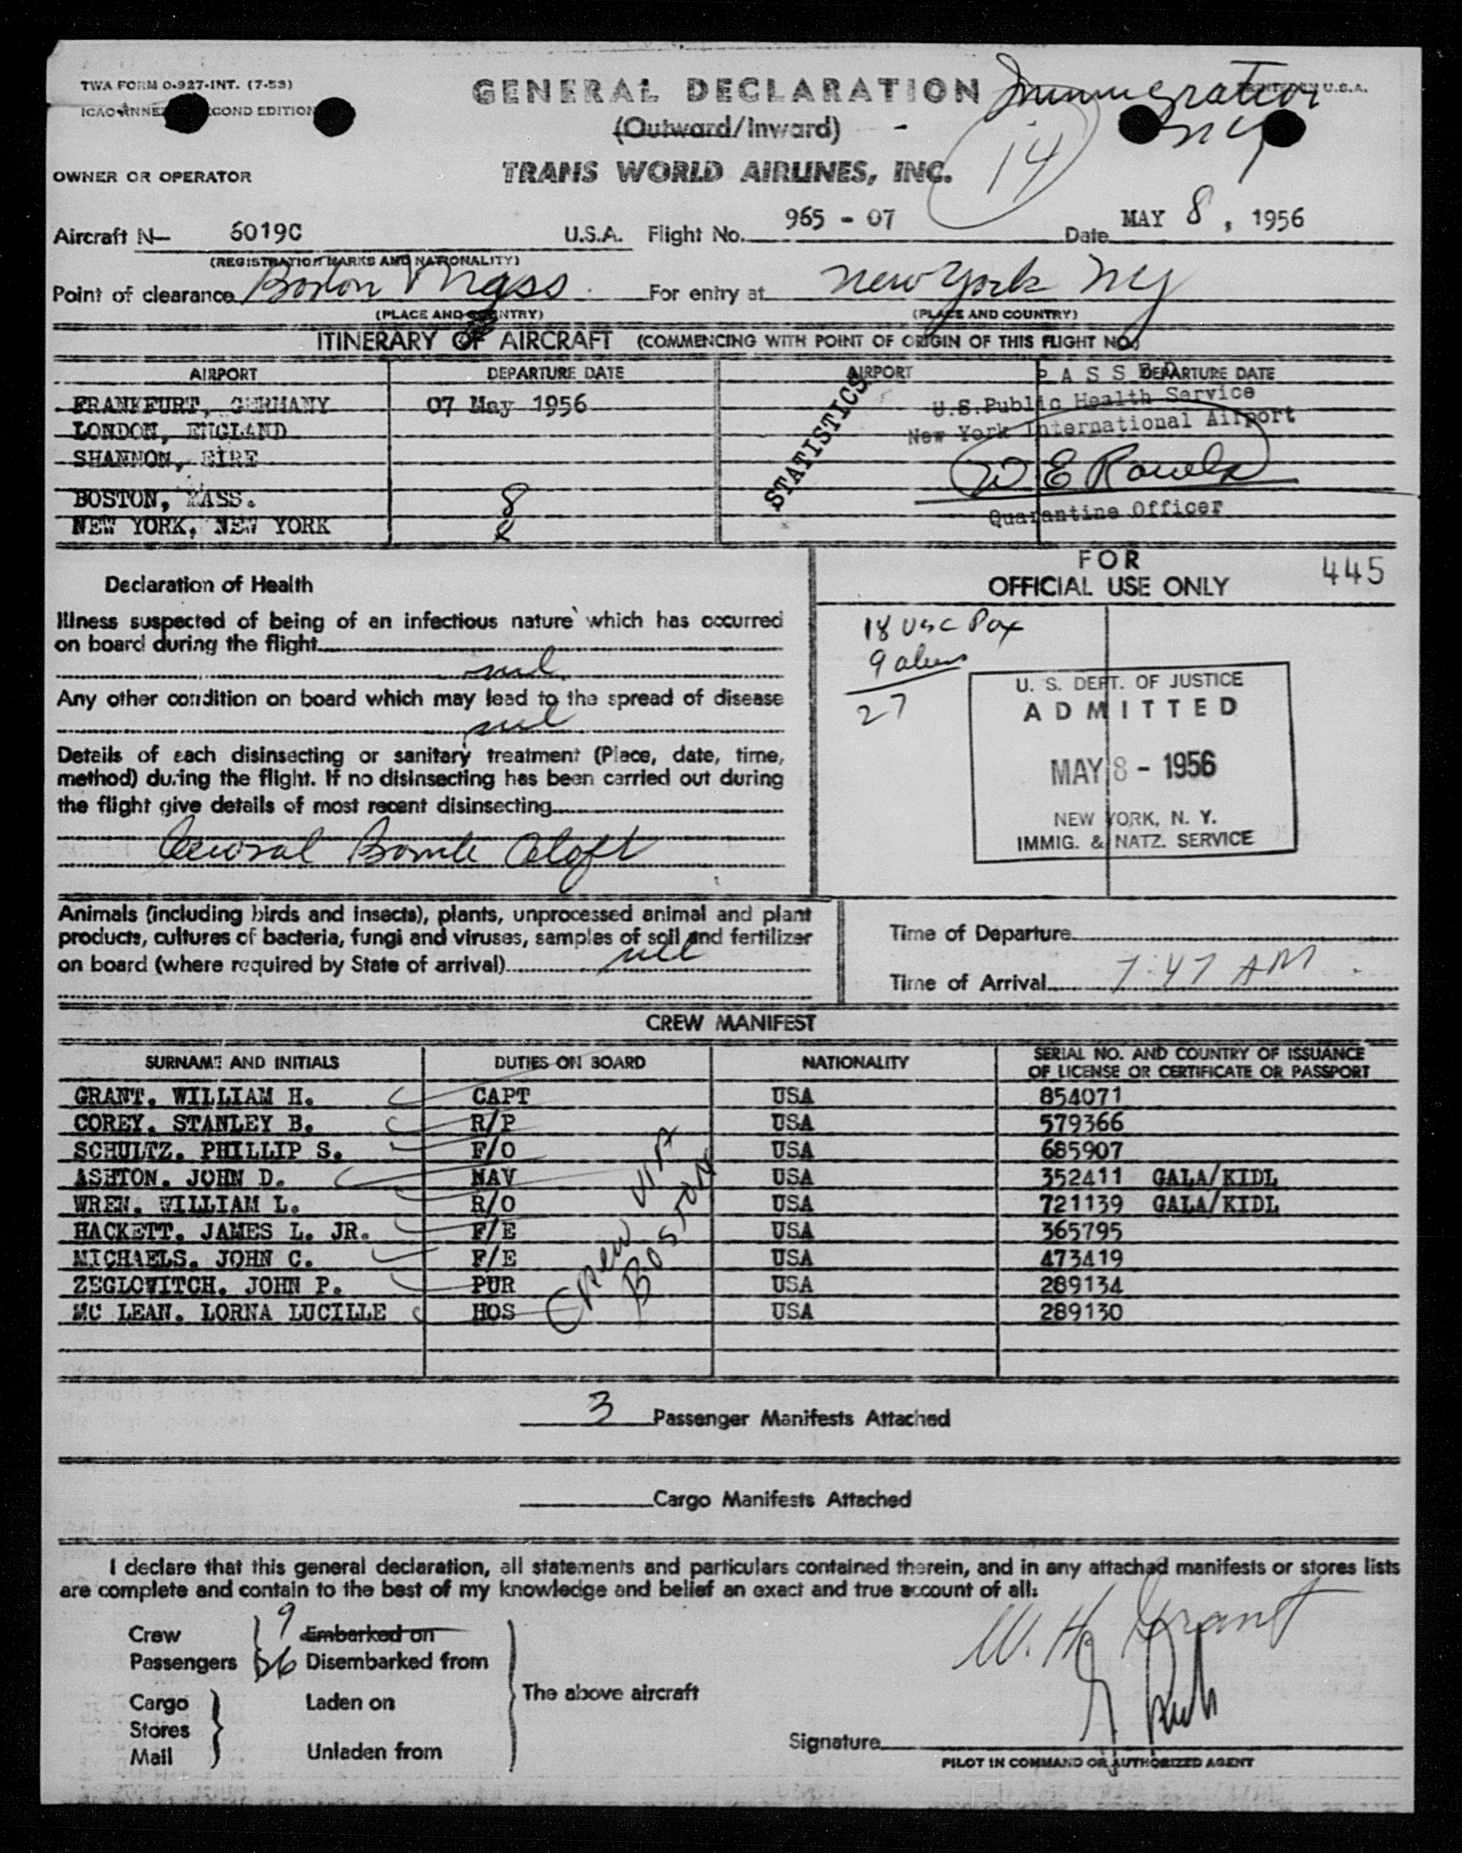 TWA FORM O-927-INT. (7-53)
GENERAL DECLARATION
Immigration
U.S.A.
SECOND EDITION
(Outward/Inward) -
NY
14
TRANS WORLD AIRLINES, INC.
OWNER OR OPERATOR
Aircraft N- 6019C U.S.A. Flight No. 965 - 07 Date MAY 8, 1956
(REGISTRATION MARKS AND NATIONALITY)
Point of clearance Boston Mass For entry at New York NY
(PLACE AND COUNTRY) (PLACE AND COUNTRY)
ITINERARY OF AIRCRAFT (COMMENCING WITH POINT OF ORIGIN OF THIS FLIGHT NO.)
AIRPORT DEPARTURE DATE AIRPORT DEPARTURE DATE
PASSED
FRANKFURT, GERMANY 07 May 1956
U.S. Public Health Service
LONDON, ENGLAND
New York International Airport
SHANNON, EIRE
STATISTICS
BOSTON, MASS. 8
NEW YORK, NEW YORK 8
Quarantine Officer
FOR
OFFICIAL USE ONLY
445
Declaration of Health
Illness suspected of being of an infectious nature which has occurred
on board during the flight
nil
Any other condition on board which may lead to the spread of disease
nil
Details of each disinsecting or sanitary treatment (Place, date, time,
method) during the flight. If no disinsecting has been carried out during
the flight give details of most recent disinsecting
Aerosal Bomb Aloft
18 USC Pax
9 aliens
27
U. S. DEPT. OF JUSTICE
ADMITTED
MAY 8 - 1956
NEW YORK, N. Y.
IMMIG. & NATZ. SERVICE
Animals (including birds and insects), plants, unprocessed animal and plant
products, cultures of bacteria, fungi and viruses, samples of soil and fertilizer
on board (where required by State of arrival) nil
Time of Departure
Time of Arrival 7:47 AM
CREW MANIFEST
SURNAME AND INITIALS DUTIES ON BOARD NATIONALITY SERIAL NO. AND COUNTRY OF ISSUANCE
OF LICENSE OR CERTIFICATE OR PASSPORT
GRANT, WILLIAM H. CAPT USA 854071
COREY, STANLEY B. R/P USA 579366
SCHULTZ, PHILLIP S. F/O USA 685907
ASHTON, JOHN D. NAV USA 352411 GALA/KIDL
WREN, WILLIAM L. R/O USA 721139 GALA/KIDL
HACKETT, JAMES L. JR. F/E USA 365795
MICHAELS, JOHN C. F/E USA 473419
ZEGLOVITCH, JOHN P. PUR USA 289134
MC LEAN, LORNA LUCILLE HOS USA 289130
Crew VIA
BOSTON
3 Passenger Manifests Attached
Cargo Manifests Attached
I declare that this general declaration, all statements and particulars contained therein, and in any attached manifests or stores lists
are complete and contain to the best of my knowledge and belief an exact and true account of all:
Crew 9 Embarked on
Passengers 26 Disembarked from
Cargo Laden on
Stores
Mail Unladen from
The above aircraft
W. H. Grant
Signature
PILOT IN COMMAND OR AUTHORIZED AGENT